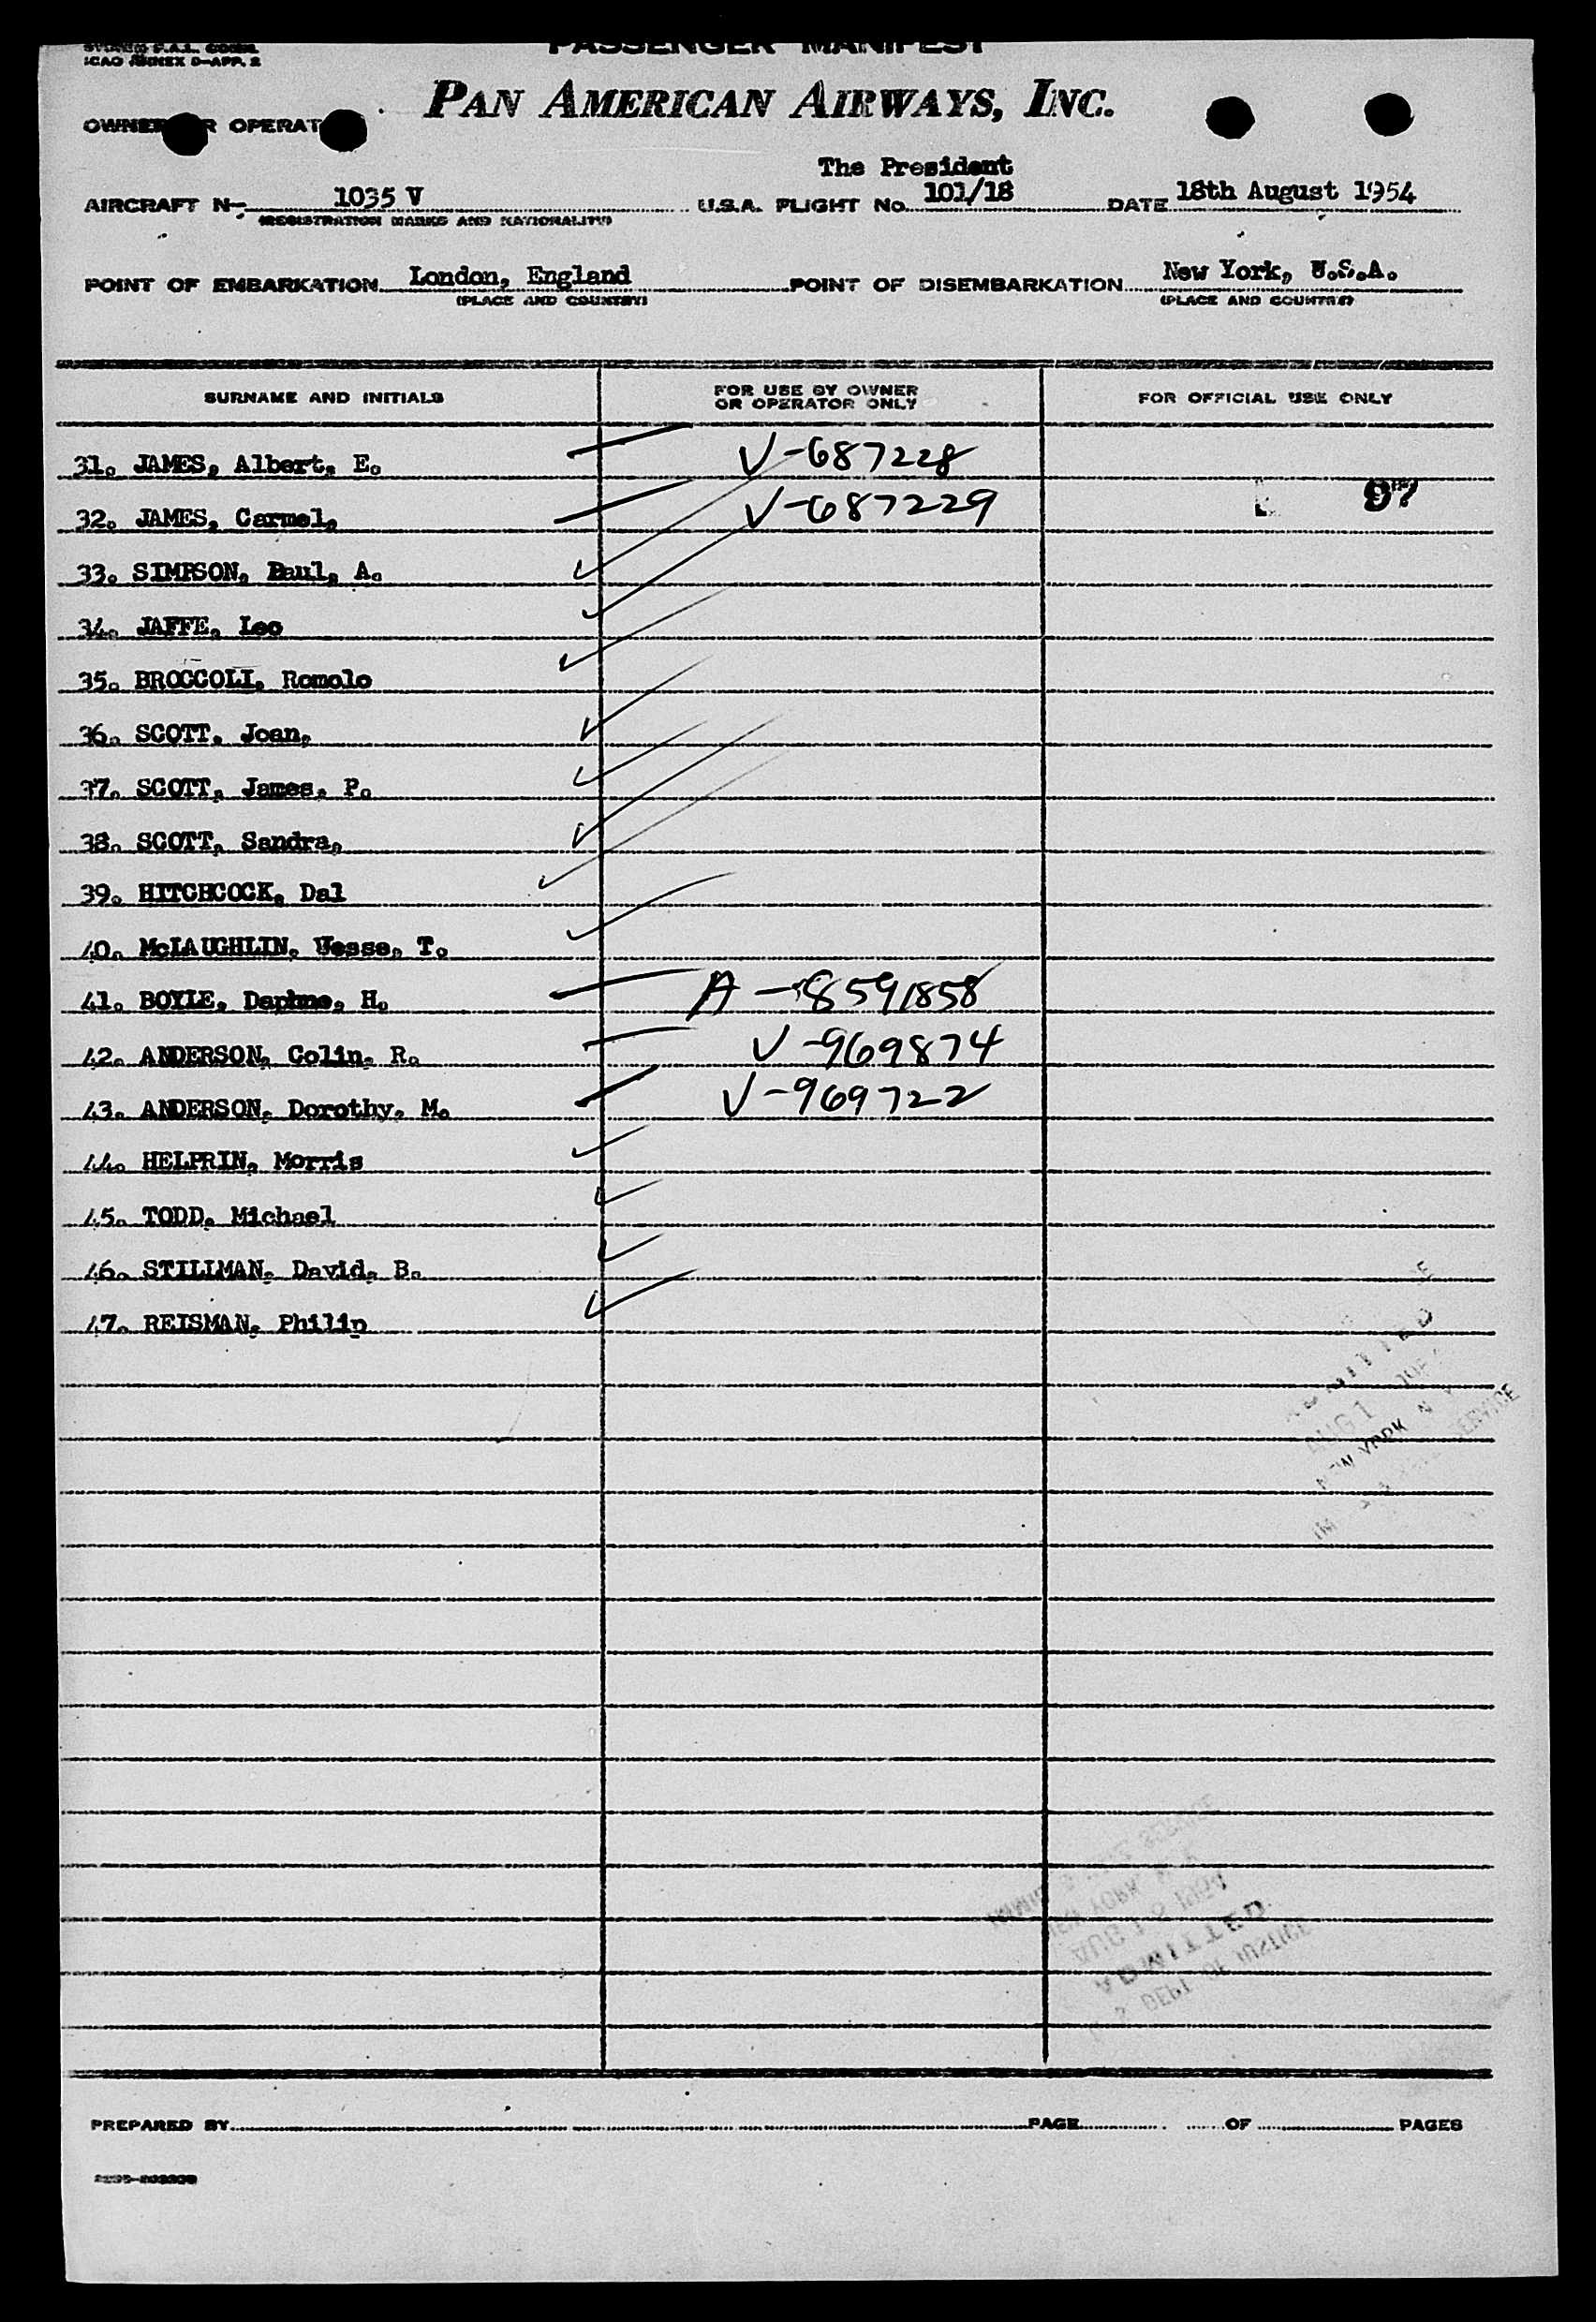 PASSENGER MANIFEST
ICAO ANNEX 9-APP. 2
PAN AMERICAN AIRWAYS, INC.
OWNER OR OPERAT
The President
AIRCRAFT N- 1035 V U.S.A. FLIGHT No. 101/18 DATE 18th August 1954
(REGISTRATION MARKS AND NATIONALITY)
POINT OF EMBARKATION London, England POINT OF DISEMBARKATION New York, U.S.A.
(PLACE AND COUNTRY) (PLACE AND COUNTRY)
SURNAME AND INITIALS FOR USE BY OWNER OR OPERATOR ONLY FOR OFFICIAL USE ONLY
31. JAMES, Albert, E. V-687228
32. JAMES, Carmel, V-687229
33. SIMPSON, Paul, A.
34. JAFFE, Leo
35. BROCCOLI, Romolo
36. SCOTT, Joan,
37. SCOTT, James, P.
38. SCOTT, Sandra,
39. HITCHCOCK, Dal
40. McLAUGHLIN, Wesse, T.
41. BOYLE, Daphne, H. A-8591858
42. ANDERSON, Colin, R. V-969874
43. ANDERSON, Dorothy, M. V-969722
44. HELPRIN, Morris
45. TODD, Michael
46. STILLMAN, David, B.
47. REISMAN, Philip
ADMITTED
AUG 1
NEW YORK N Y
SERVICE
NEW YORK
ADMITTED
DEPT OF JUSTICE
PREPARED BY PAGE OF PAGES